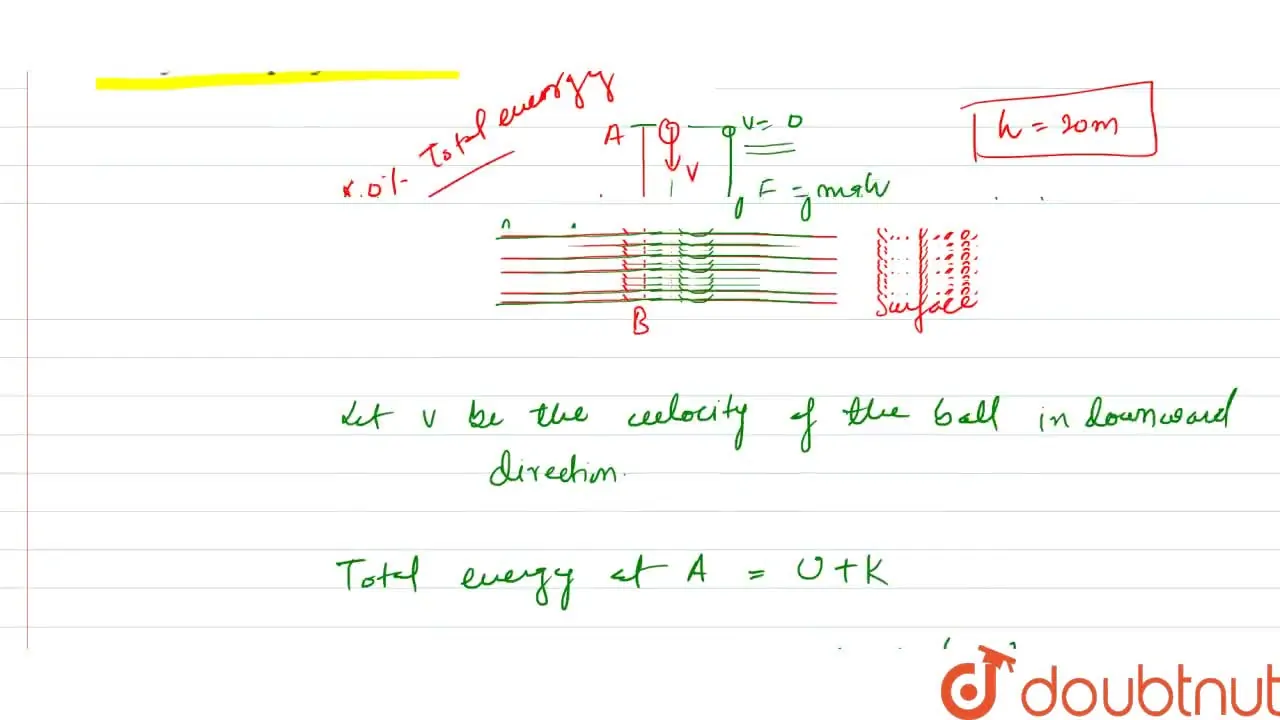 Total energy
A
V = 0
h = 20m
V
Surface
B
Let v be the velocity of the ball in downward
direction.
Total energy at A = U + K
doubtnut